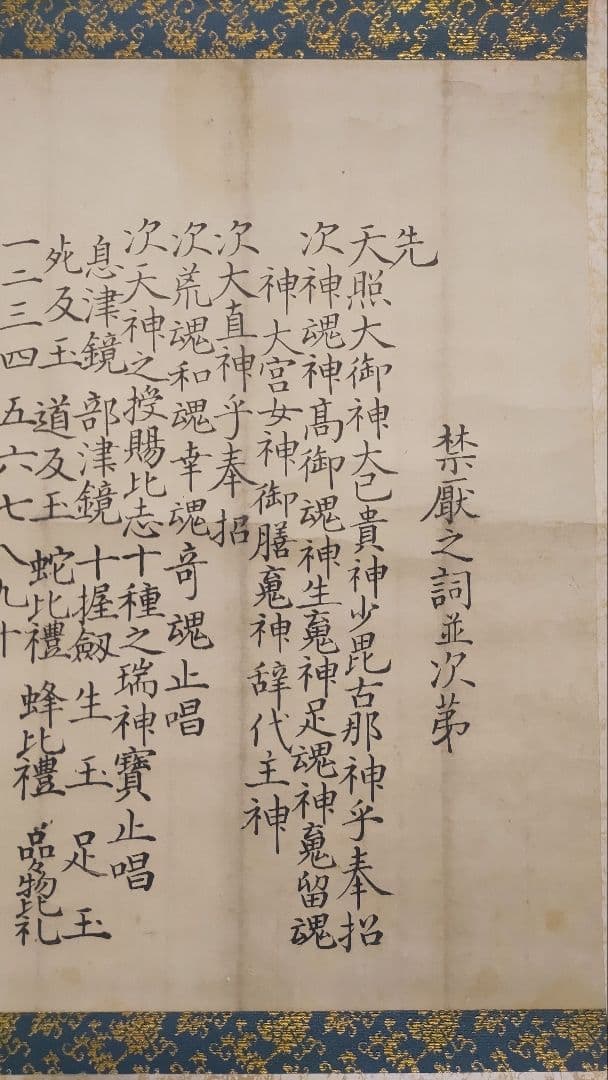 禁厭之詞並次第
先
天照大御神大已貴神少毘古那神乎奉招
次神魂神高御魂神生䰟神足魂神䰟留魂
神大宮女神御膳䰟神辞代主神
次大直神乎奉招
次荒魂和魂幸魂奇魂止唱
次天神之授賜比志十種之瑞神寶止唱
息津鏡 部津鏡 十握劔 生玉 足玉
死反玉 道反玉 蛇比禮 蜂比禮 品々物比礼
一二三四五六七八九十